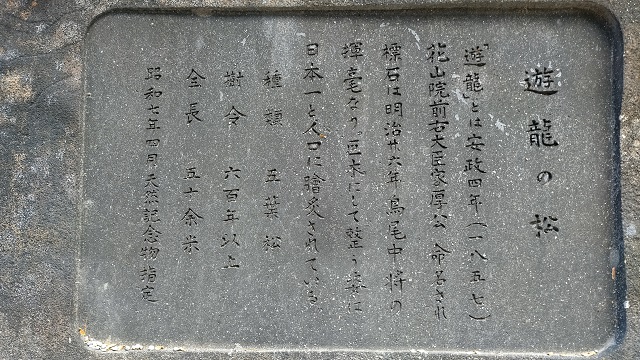 遊龍の松
「遊龍」とは安政四年(一八五七)
花山院前右大臣家厚公 命名され
標石は明治廿六年鳥尾中将の
揮毫なり。巨木にして整う姿に
日本一と人口に膾炙されている
種類 五葉松
樹令 六百年以上
全長 五十余米
昭和七年四月天然記念物指定